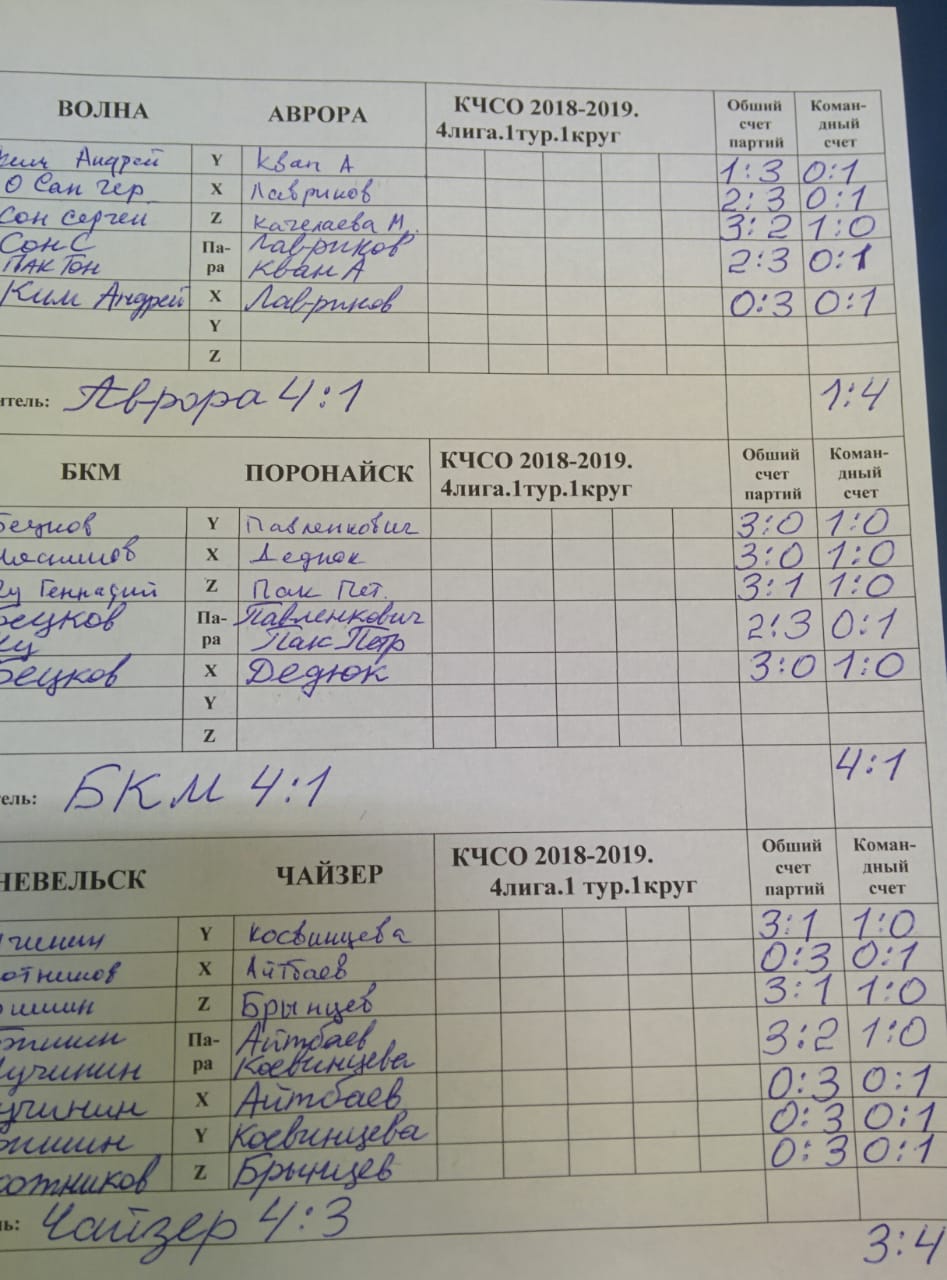 ВОЛНА АВРОРА КЧСО 2018-2019. Общий Коман-
4лига.1тур.1круг счет дный
партий счет
Андрей Y Кван А 1:3 0:1
О Сан гер X Лавриков 2:3 0:1
Сон Сергей Z Качелаева М. 3:2 1:0
Сон С Па- Лавриков 2:3 0:1
Пак Тон ра Кван А
Ким Андрей X Лавриков 0:3 0:1
Y
Z
итель: Аврора 4:1 1:4
БКМ ПОРОНАЙСК КЧСО 2018-2019. Общий Коман-
4лига.1тур.1круг счет дный
партий счет
Бецков Y Павленкович 3:0 1:0
X Дедюк 3:0 1:0
Геннадий Z Пак Пет. 3:1 1:0
Бецков Па- Павленкович 2:3 0:1
ра Пак Петр
Бецков X Дедюк 3:0 1:0
Y
Z
тель: БКМ 4:1 4:1
НЕВЕЛЬСК ЧАЙЗЕР КЧСО 2018-2019. Общий Коман-
4лига.1 тур.1круг счет дный
партий счет
Y Косвинцева 3:1 1:0
отников X Айтбаев 0:3 0:1
Z Брынцев 3:1 1:0
Па- Айтбаев 3:2 1:0
учинин ра Косвинцева
учинин X Айтбаев 0:3 0:1
Y Косвинцева 0:3 0:1
отников Z Брынцев 0:3 0:1
ль: Чайзер 4:3
3:4